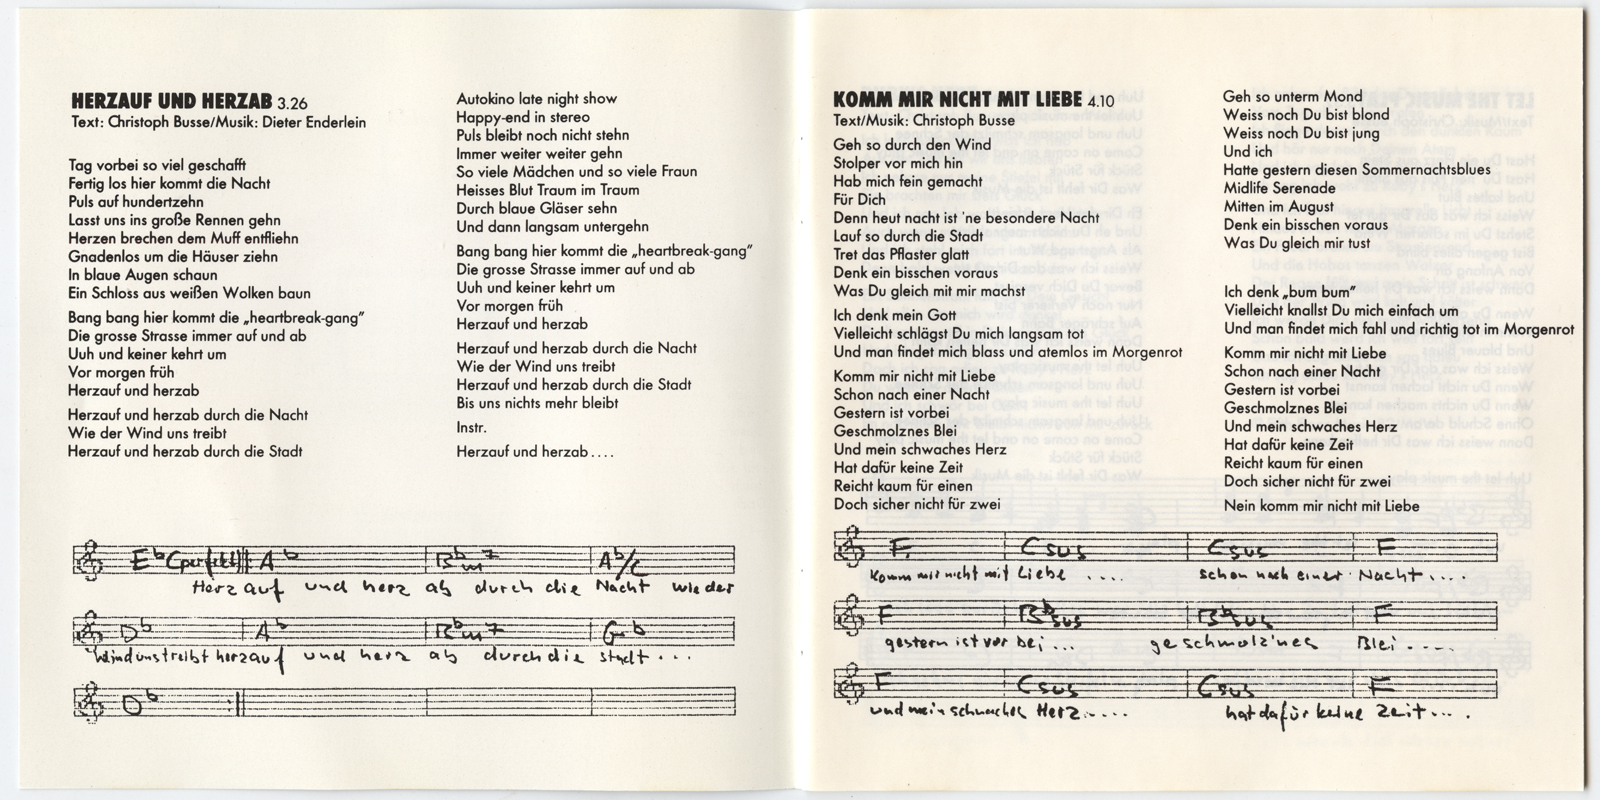 HERZAUF UND HERZAB 3.26
Text: Christoph Busse/Musik: Dieter Enderlein
Tag vorbei so viel geschafft
Fertig los hier kommt die Nacht
Puls auf hundertzehn
Lasst uns ins große Rennen gehn
Herzen brechen dem Muff entfliehn
Gnadenlos um die Häuser ziehn
In blaue Augen schaun
Ein Schloss aus weißen Wolken baun
Bang bang hier kommt die „heartbreak-gang“
Die grosse Strasse immer auf und ab
Uuh und keiner kehrt um
Vor morgen früh
Herzauf und herzab
Herzauf und herzab durch die Nacht
Wie der Wind uns treibt
Herzauf und herzab durch die Stadt
Autokino late night show
Happy-end in stereo
Puls bleibt noch nicht stehn
Immer weiter weiter gehn
So viele Mädchen und so viele Fraun
Heisses Blut Traum im Traum
Durch blaue Gläser sehn
Und dann langsam untergehn
Bang bang hier kommt die „heartbreak-gang“
Die grosse Strasse immer auf und ab
Uuh und keiner kehrt um
Vor morgen früh
Herzauf und herzab
Herzauf und herzab durch die Nacht
Wie der Wind uns treibt
Herzauf und herzab durch die Stadt
Bis uns nichts mehr bleibt
Instr.
Herzauf und herzab....
E♭ (perfekt) A♭ B♭m7 A♭/C
Herz auf und herz ab durch die Nacht wie der
D♭ A♭ B♭m7 G♭
Wind uns treibt herz auf und herz ab durch die stadt ...
D♭
KOMM MIR NICHT MIT LIEBE 4.10
Text/Musik: Christoph Busse
Geh so durch den Wind
Stolper vor mich hin
Hab mich fein gemacht
Für Dich
Denn heut nacht ist 'ne besondere Nacht
Lauf so durch die Stadt
Tret das Pflaster glatt
Denk ein bisschen voraus
Was Du gleich mit mir machst
Ich denk mein Gott
Vielleicht schlägst Du mich langsam tot
Und man findet mich blass und atemlos im Morgenrot
Komm mir nicht mit Liebe
Schon nach einer Nacht
Gestern ist vorbei
Geschmolznes Blei
Und mein schwaches Herz
Hat dafür keine Zeit
Reicht kaum für einen
Doch sicher nicht für zwei
Geh so unterm Mond
Weiss noch Du bist blond
Weiss noch Du bist jung
Und ich
Hatte gestern diesen Sommernachtsblues
Midlife Serenade
Mitten im August
Denk ein bisschen voraus
Was Du gleich mir tust
Ich denk „bum bum“
Vielleicht knallst Du mich einfach um
Und man findet mich fahl und richtig tot im Morgenrot
Komm mir nicht mit Liebe
Schon nach einer Nacht
Gestern ist vorbei
Geschmolznes Blei
Und mein schwaches Herz
Hat dafür keine Zeit
Reicht kaum für einen
Doch sicher nicht für zwei
Nein komm mir nicht mit Liebe
F Csus Csus F
Komm mir nicht mit Liebe .... schon nach einer Nacht ....
F B♭sus B♭sus F
gestern ist vorbei ... geschmolz'nes Blei ....
F Csus Csus F
und mein schwaches Herz ..... hat dafür keine Zeit ....